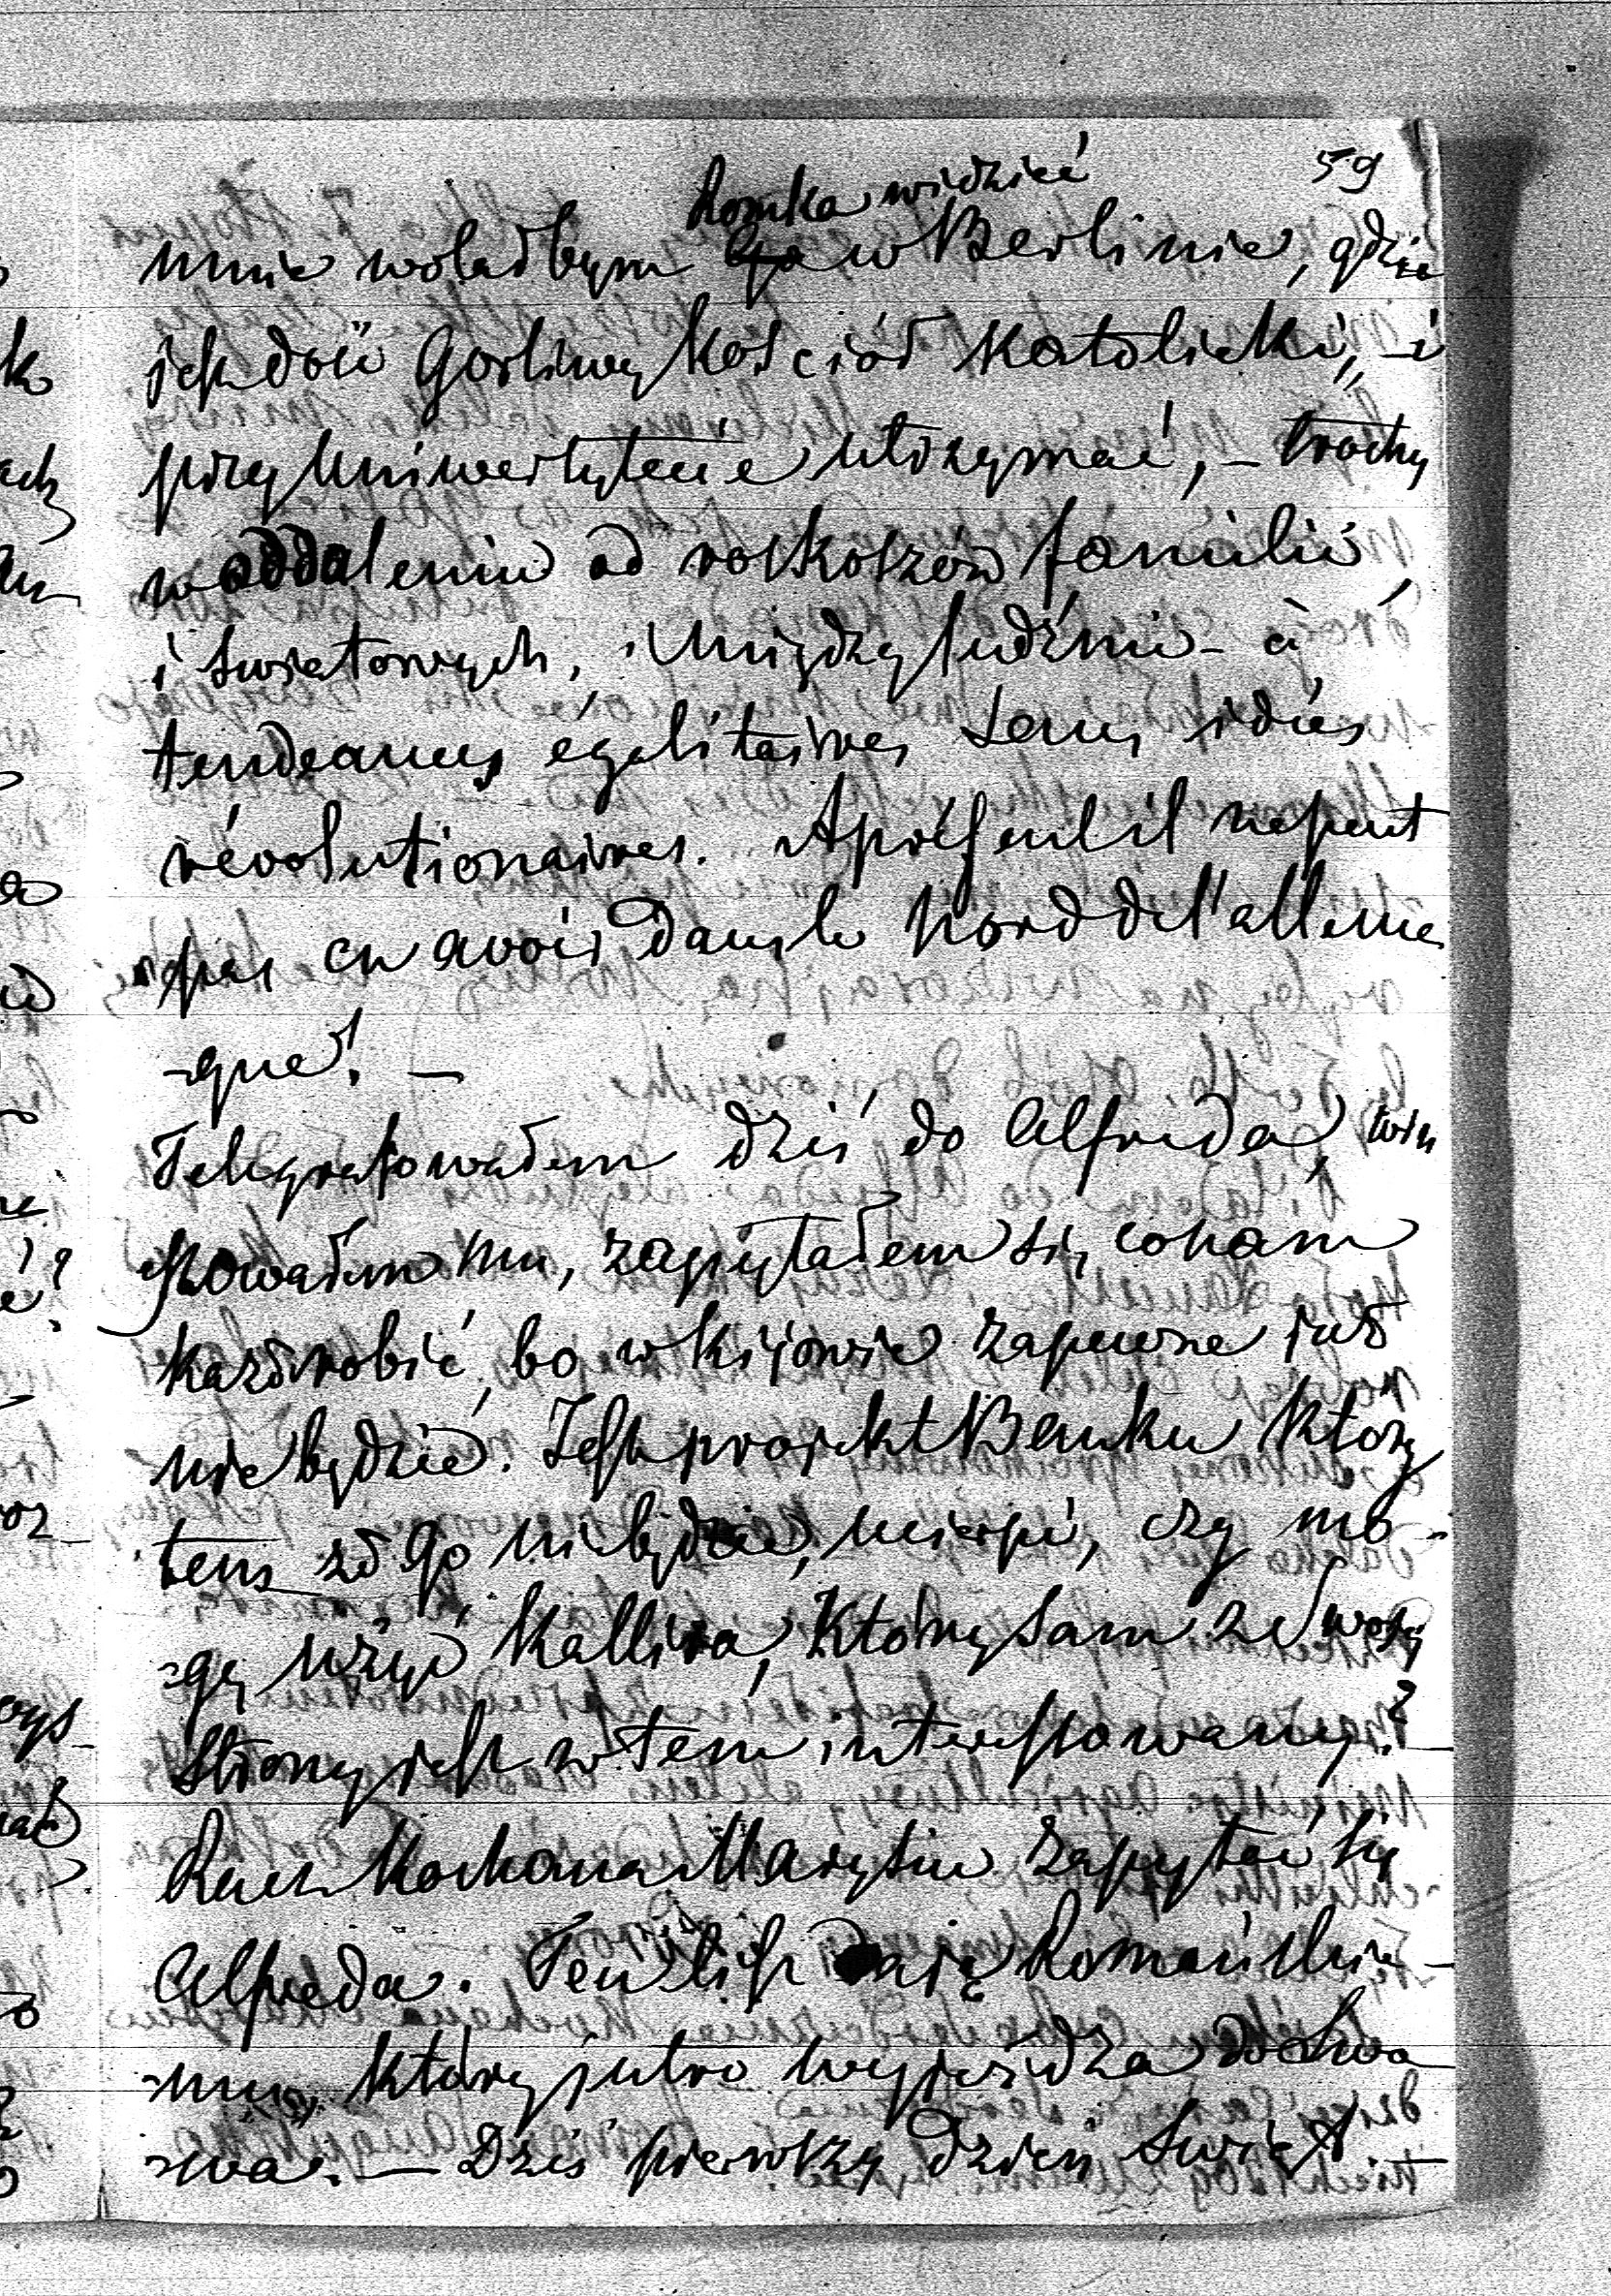 59
Romka widzieć
mnie wolałbym go w Berlinie, gdzie
jest dość Gorliwy Kościół Katolicki, i
przy Uniwersytecie utrzymać, – trochę
w oddaleniu od roskoszów familii
i światowych, i między ludźmi – à
tendeances égalitaires sans idées
révolutionaires. Après cul il ne peut
pas en avoir dans le Nord de l'allema
-gne! —
Telegrafowałem dziś do Alfreda, win
szowałem mu, zapytałem się co nam
każe robić, bo w Kijowie zapewne już
nie będzie. Jest projekt Banku który
tem go nie będzie, czy mo-
-gę użyć Kallira, który sam ze swojej
strony jest w tem interessowany? —
Racz Kochana Marysiu zapytać się
Alfreda. Ten list daję Romańskie-
-mu, który jutro wyjeżdża do Lwo
-wa. — Dziś pierwszy dzień Świąt